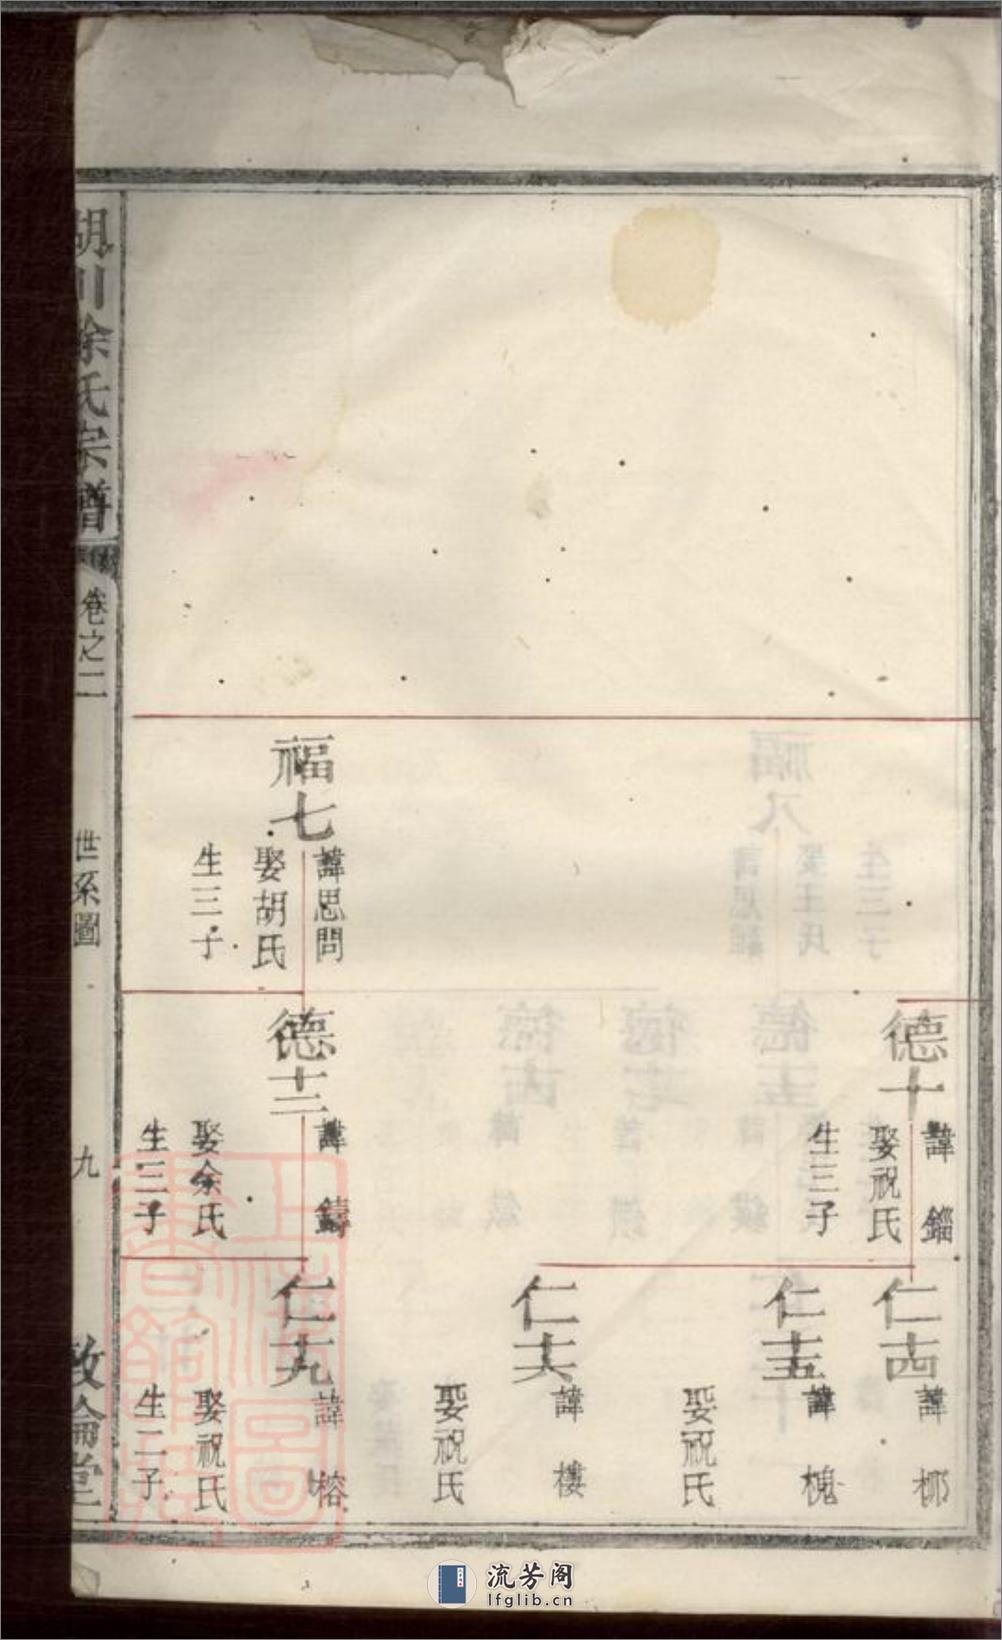 福七
諱思問
娶胡氏
生三子
德十
諱 鎦
娶祝氏
生三子
德十二
諱 鑄
娶余氏
生三子
仁十四
諱 梛
仁十五
諱 槐
娶祝氏
仁十六
諱 樓
娶祝氏
仁十九
諱 榕
娶祝氏
生二子
胡川余氏宗譜
卷之二
世系圖
九
敦倫堂
上海圖書館藏
流芳阁
lfglib.cn